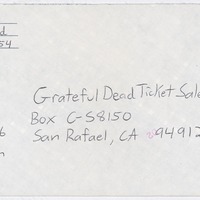 d
54
Grateful Dead Ticket Sale
Box C-S8150
San Rafael, CA 94912
6
n